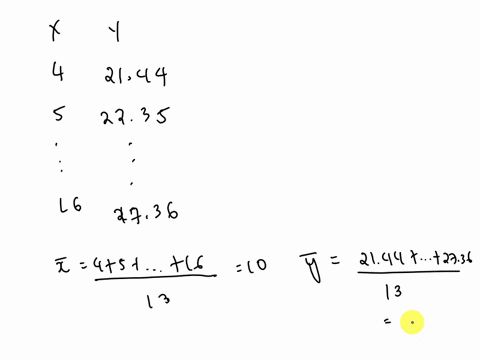 X Y
4 21.44
5 22.35
⋮ ⋮
16 27.36
x̄ = 4+5+...+16 / 13 = 10 ȳ = 21.44+...+27.36 / 13
= .